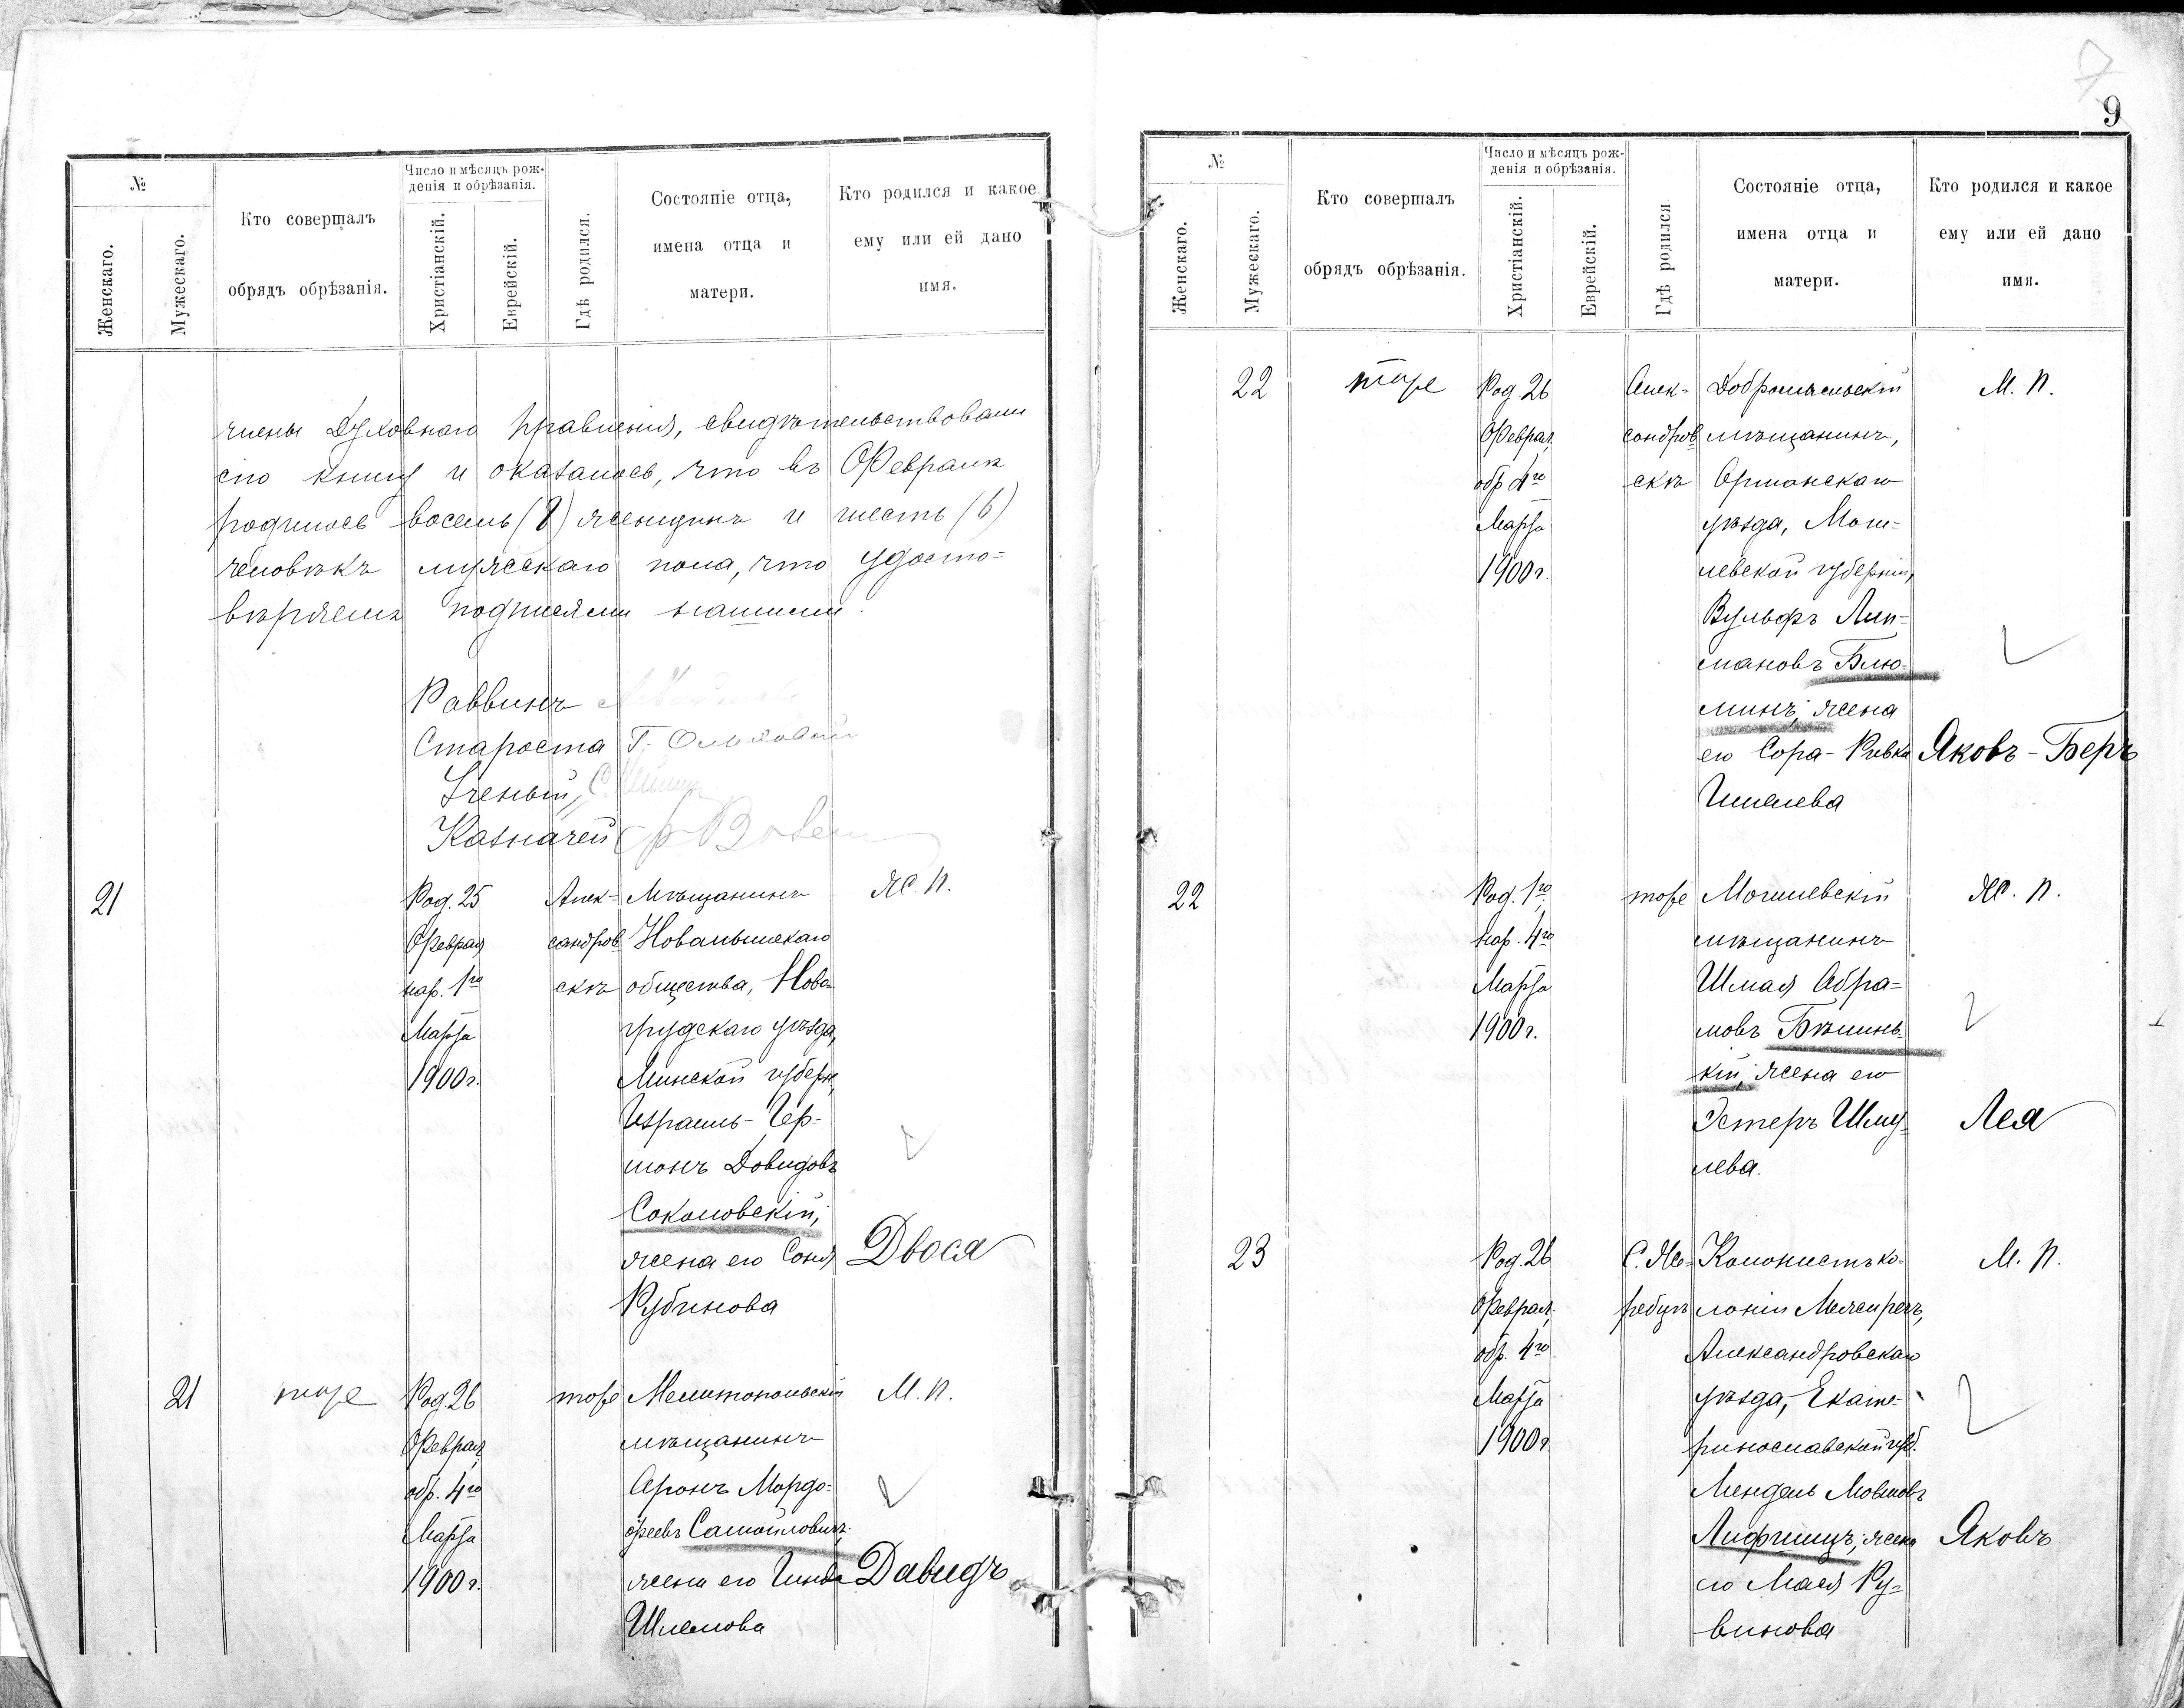 №
Женскаго.
Мужескаго.
Кто совершалъ
обрядъ обрѣзанія.
Число и мѣсяцъ рож-
денія и обрѣзанія.
Христіанскій.
Еврейскій.
Гдѣ родился.
Состояніе отца,
имена отца и
матери.
Кто родился и какое
ему или ей дано
имя.
члены Духовнаго Правленія, свидѣтельствовали
сію книгу и оказалось, что въ Февралѣ
родилось восемь (8) женщинъ и шесть (6)
человѣкъ мужескаго пола, что удосто-
вѣряемъ подписями нашими.
Раввинъ
Староста Г.
Ученый,
Казначей
21
Род. 25
Феврал,
нар. 1го
Марта
1900 г.
Алек-
сандров
скъ
Мѣщанинъ
Новамышскаго
общества, Ново
грудскаго уѣзда,
Минской губерн,
Израиль-Гер-
шонъ Довидовъ
Соколовскій,
жена его Соня
Рубинова
Ж. п.
Двося
21
тоже
Род. 26
Феврал,
обр. 4го
Марта
1900 г.
тоже
Мелитопольскій
мѣщанинъ
Аронъ Мордо-
феевъ Самойловичъ
жена его Гинда
Шлемова
М. п.
Давидъ
9
№
Женскаго.
Мужескаго.
Кто совершалъ
обрядъ обрѣзанія.
Число и мѣсяцъ рож-
денія и обрѣзанія.
Христіанскій.
Еврейскій.
Гдѣ родился
Состояніе отца,
имена отца и
матери.
Кто родился и какое
ему или ей дано
имя.
22
тоже
Род. 26
Феврал,
обр 4го
Марта
1900 г.
Алек-
сандров
скъ
Добромысльскій
мѣщанинъ,
Оршанскаго
уѣзда, Моги-
левской губерніи,
Вульфъ Лип-
мановъ Блю-
минъ, жена
его Сора-Ривка
М. п.
Яковъ-Беръ
22
Род. 1го,
нар. 4го
Марта
1900 г.
тоже
Могилевскій
мѣщанинъ
Шмая Абра-
мовъ Бѣлинь-
кій, жена его
Эстеръ Шму-
лева.
Ж. п.
Лея
23
Род. 26
Феврал,
обр. 4го
Марта
1900 г.
С. Же-
ребцъ
Колонистъ ко-
лоніи Межирѣчъ,
Александровскаго
уѣзда, Екате-
ринославской губ.
Мендель Мовшовъ
Лифшицъ, жена
его Мася Ру-
винова
М. п.
Яковъ